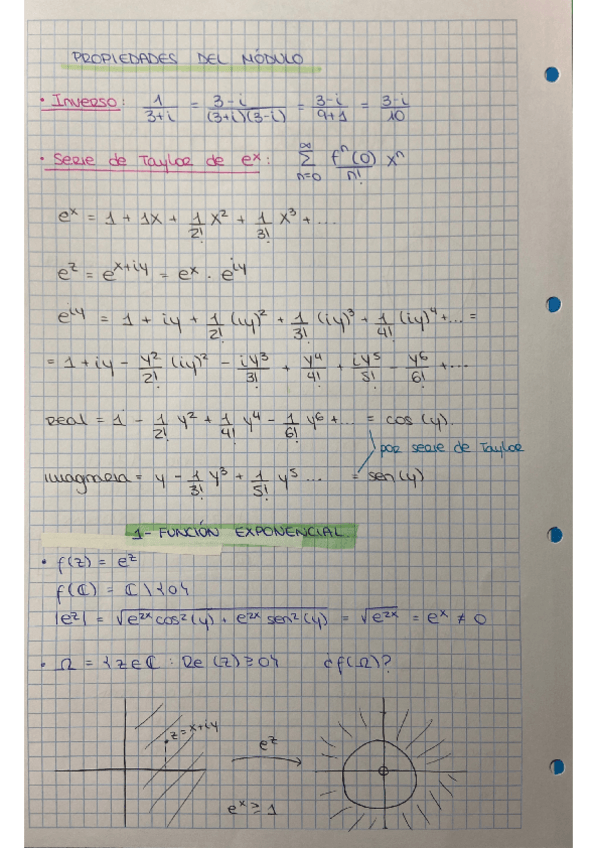 PROPIEDADES DEL MÓDULO
• Inverso: 1/(3+i) = (3-i)/((3+i)(3-i)) = (3-i)/(9+1) = (3-i)/10
• Serie de Taylor de eˣ: ∑_{n=0}^{∞} fⁿ(0)/n! xⁿ
eˣ = 1 + 1x + 1/2! x² + 1/3! x³ + ...
e^z = e^{x+iy} = e^x · e^{iy}
e^{iy} = 1 + iy + 1/2! (iy)² + 1/3! (iy)³ + 1/4! (iy)⁴ + ... =
= 1 + iy - y²/2! (iy)² - iy³/3! + y⁴/4! + iy⁵/5! - y⁶/6! + ...
Real = 1 - 1/2! y² + 1/4! y⁴ - 1/6! y⁶ + ... = cos (y).
por serie de Taylor
Imaginaria = y - 1/3! y³ + 1/5! y⁵ ... = sen(y)
1- FUNCIÓN EXPONENCIAL
• f(z) = e^z
f(ℂ) = ℂ \ {0}
|e^z| = √(e^{2x} cos²(y) + e^{2x} sen²(y)) = √(e^{2x}) = e^x ≠ 0
• Ω = {z ∈ ℂ : Re (z) ≥ 0} ¿f(Ω)?
z = x+iy
e^z
e^x ≥ 1